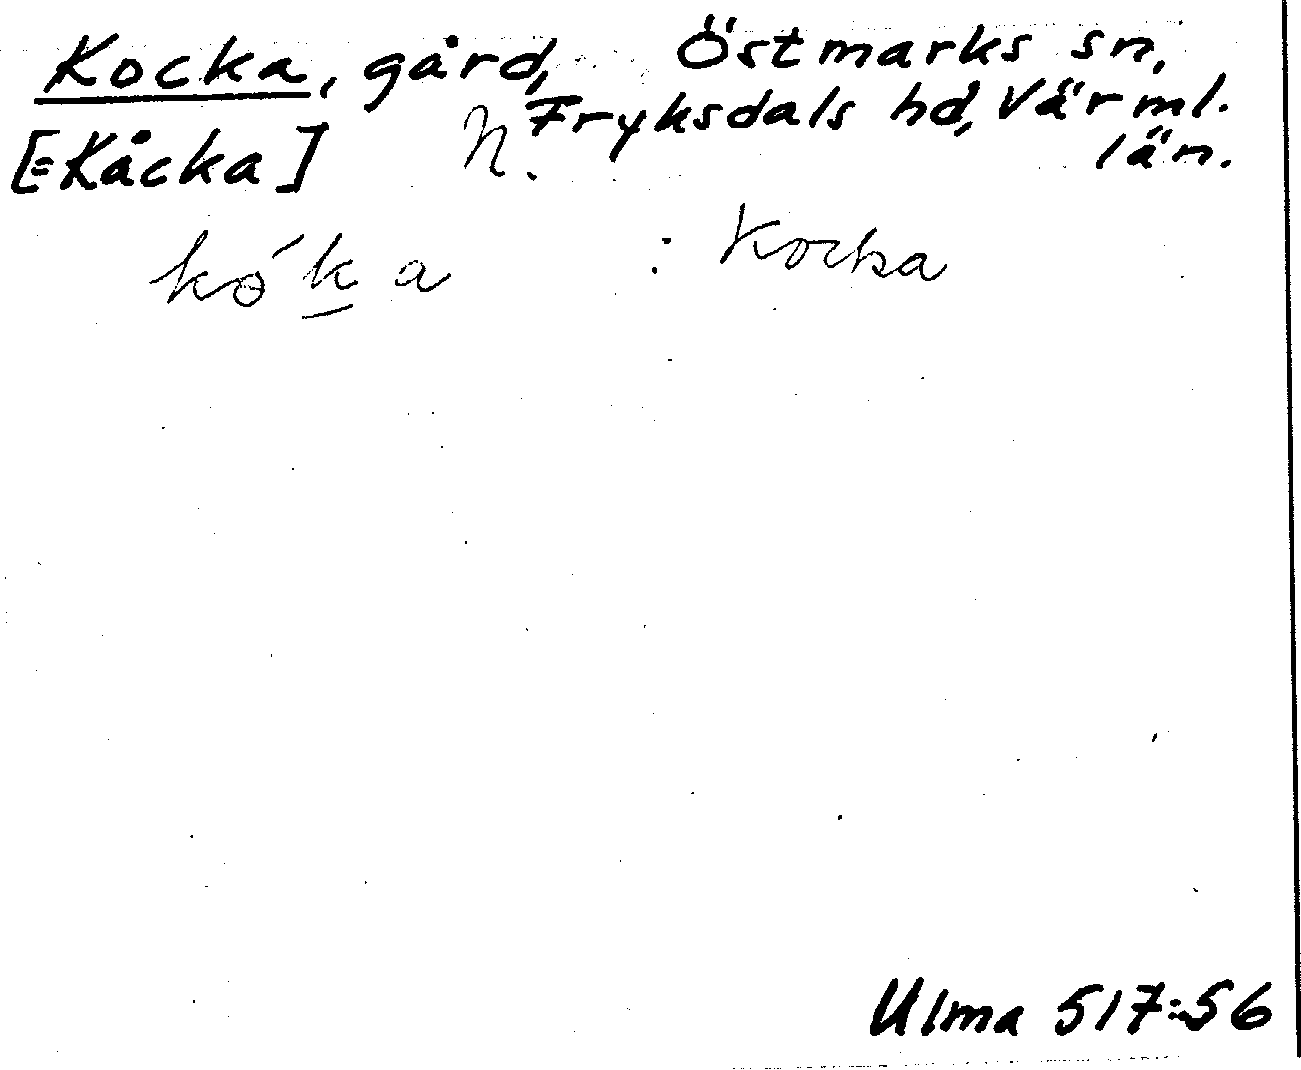 Kocka, gård, Östmarks sn,
[=Kåcka] N. Fryksdals hd, Värml.
län.
kóka : Kocka
Ulma 517:56